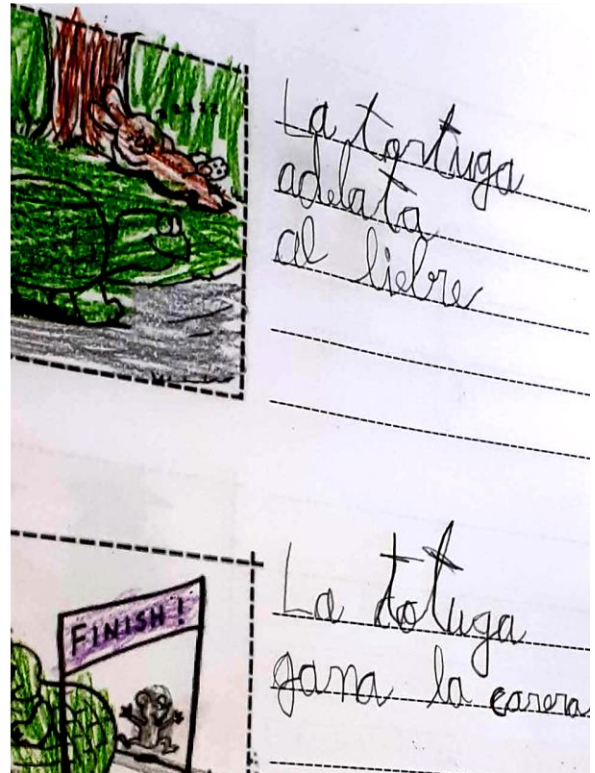 La tortuga
adelata
al liebre
FINISH!
La totuga
gana la carera